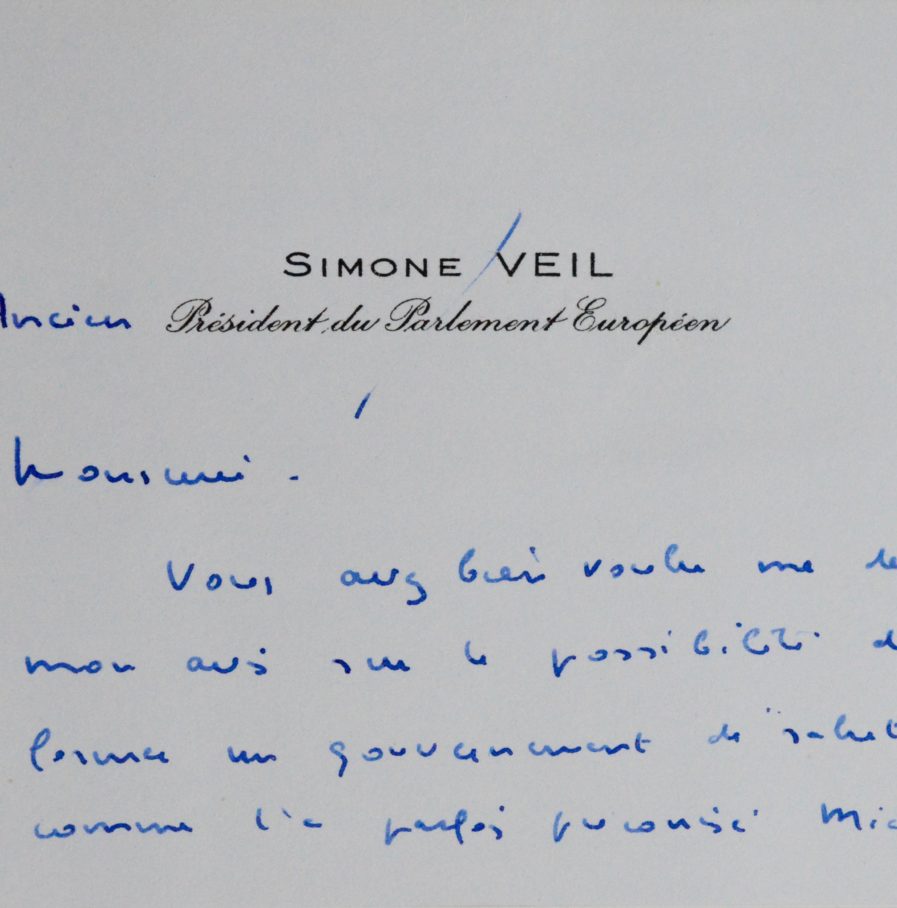 SIMONE VEIL
Ancien Président du Parlement Européen
Monsieur.
Vous avez bien voulu me de
mon avis sur la possibilité d
former un gouvernement de "salut
comme l'a parfois préconisé Mic